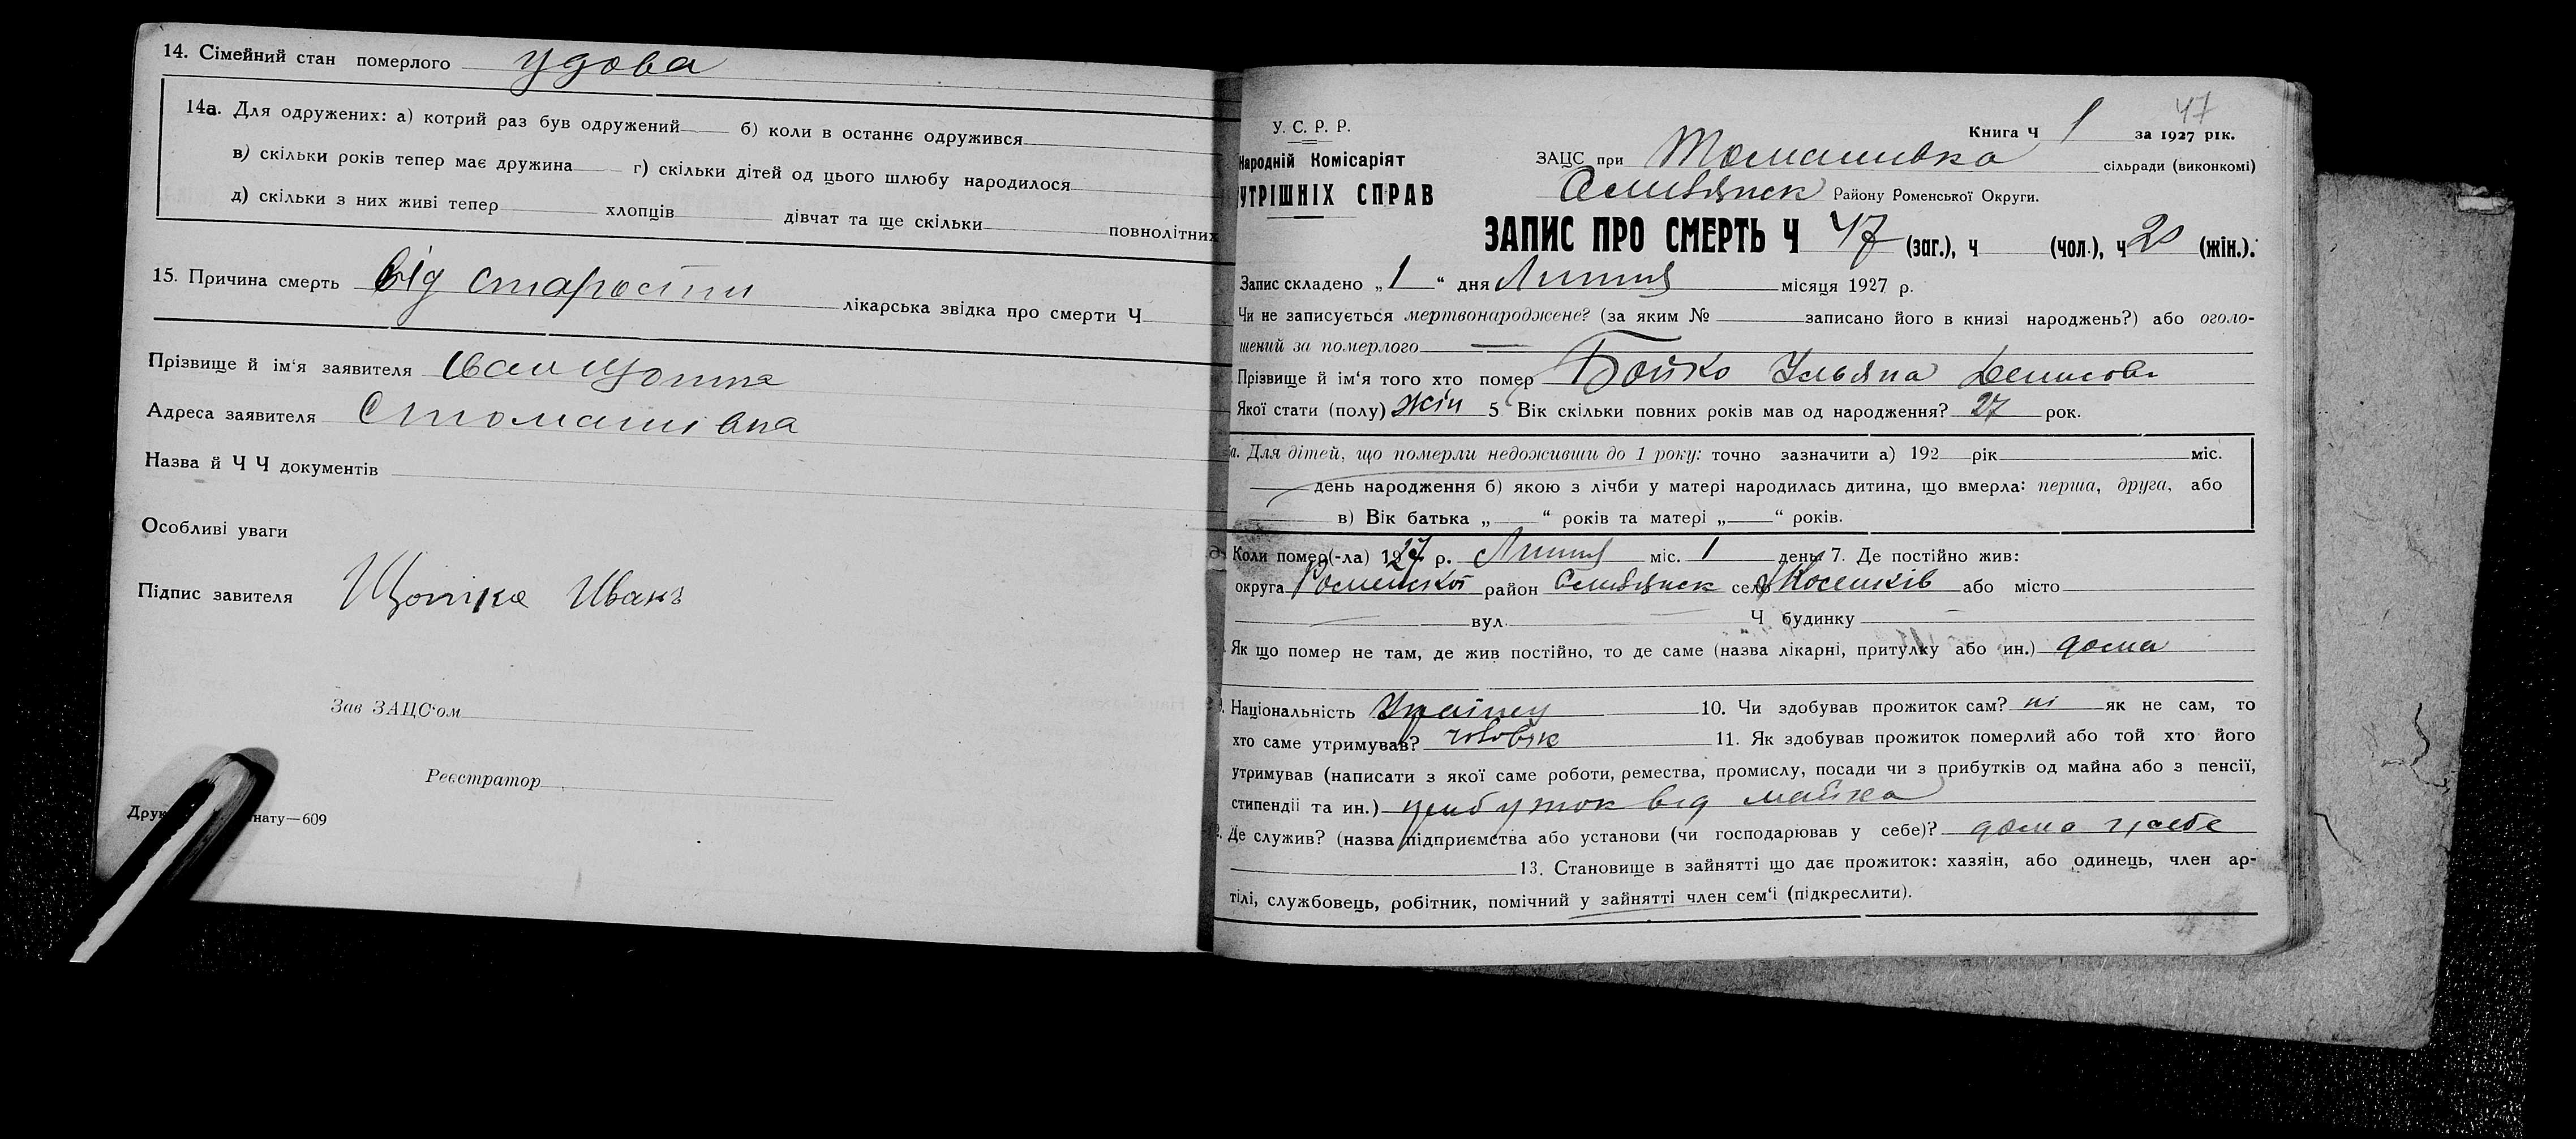 14. Сімейний стан померлого удова
14а. Для одружених: а) котрий раз був одружений б) коли в останнє одружився
в) скільки років тепер має дружина г) скільки дітей од цього шлюбу народилося
д) скільки з них живі тепер хлопців дівчат та ще скільки повнолітних
15. Причина смерть від старости лікарська звідка про смерти Ч
Прізвище й ім'я заявителя Іван Щотка
Адреса заявителя Стомашівка
Назва й Ч Ч документів
Особливі уваги
Підпис завителя Щотка Иванъ
Зав ЗАЦС'ом
Реєстратор
Друк нату—609
47
У. С. Р. Р.
Книга Ч 1 за 1927 рік.
Народній Комісаріят
ЗАЦС при Томашивка сільради (виконкомі)
УТРІШНІХ СПРАВ
Району Роменської Округи.
ЗАПИС ПРО СМЕРТЬ Ч 47 (заг.), ч (чол.), ч 20 (жін.).
Запис складено „1“ дня Липця місяця 1927 р.
Чи не записується мертвонароджене? (за яким № записано його в книзі народжень?) або оголо-
шений за померлого —
Прізвище й ім'я того хто помер Бойко Ульяна Денисов
Якої стати (полу) жін 5 Вік скільки повних років мав од народження? 27 рок.
а. Для дітей, що померли недоживши до 1 року: точно зазначити а) 192 рік міс.
день народження б) якою з лічби у матері народилась дитина, що вмерла: перша, друга, або
в) Вік батька „ “ років та матері „ “ років.
Коли помер(-ла) 1927 р. Липця міс. 1 день 7. Де постійно жив:
округа Роменської район село або місто
вул. Ч будинку
Як що помер не там, де жив постійно, то де саме (назва лікарні, притулку або ин.) дома
9. Національність Україн 10. Чи здобував прожиток сам? ні як не сам, то
хто саме утримував? чоловік 11. Як здобував прожиток померлий або той хто його
утримував (написати з якої саме роботи, ремества, промислу, посади чи з прибутків од майна або з пенсії,
стипендії та ин.) прибуток від майна
Де служив? (назва підприємства або установи (чи господарював у себе)? дома у себе
13. Становище в зайнятті що дає прожиток: хазяін, або одинець, член ар-
тілі, службовець, робітник, помічний у зайнятті член сем'і (підкреслити).